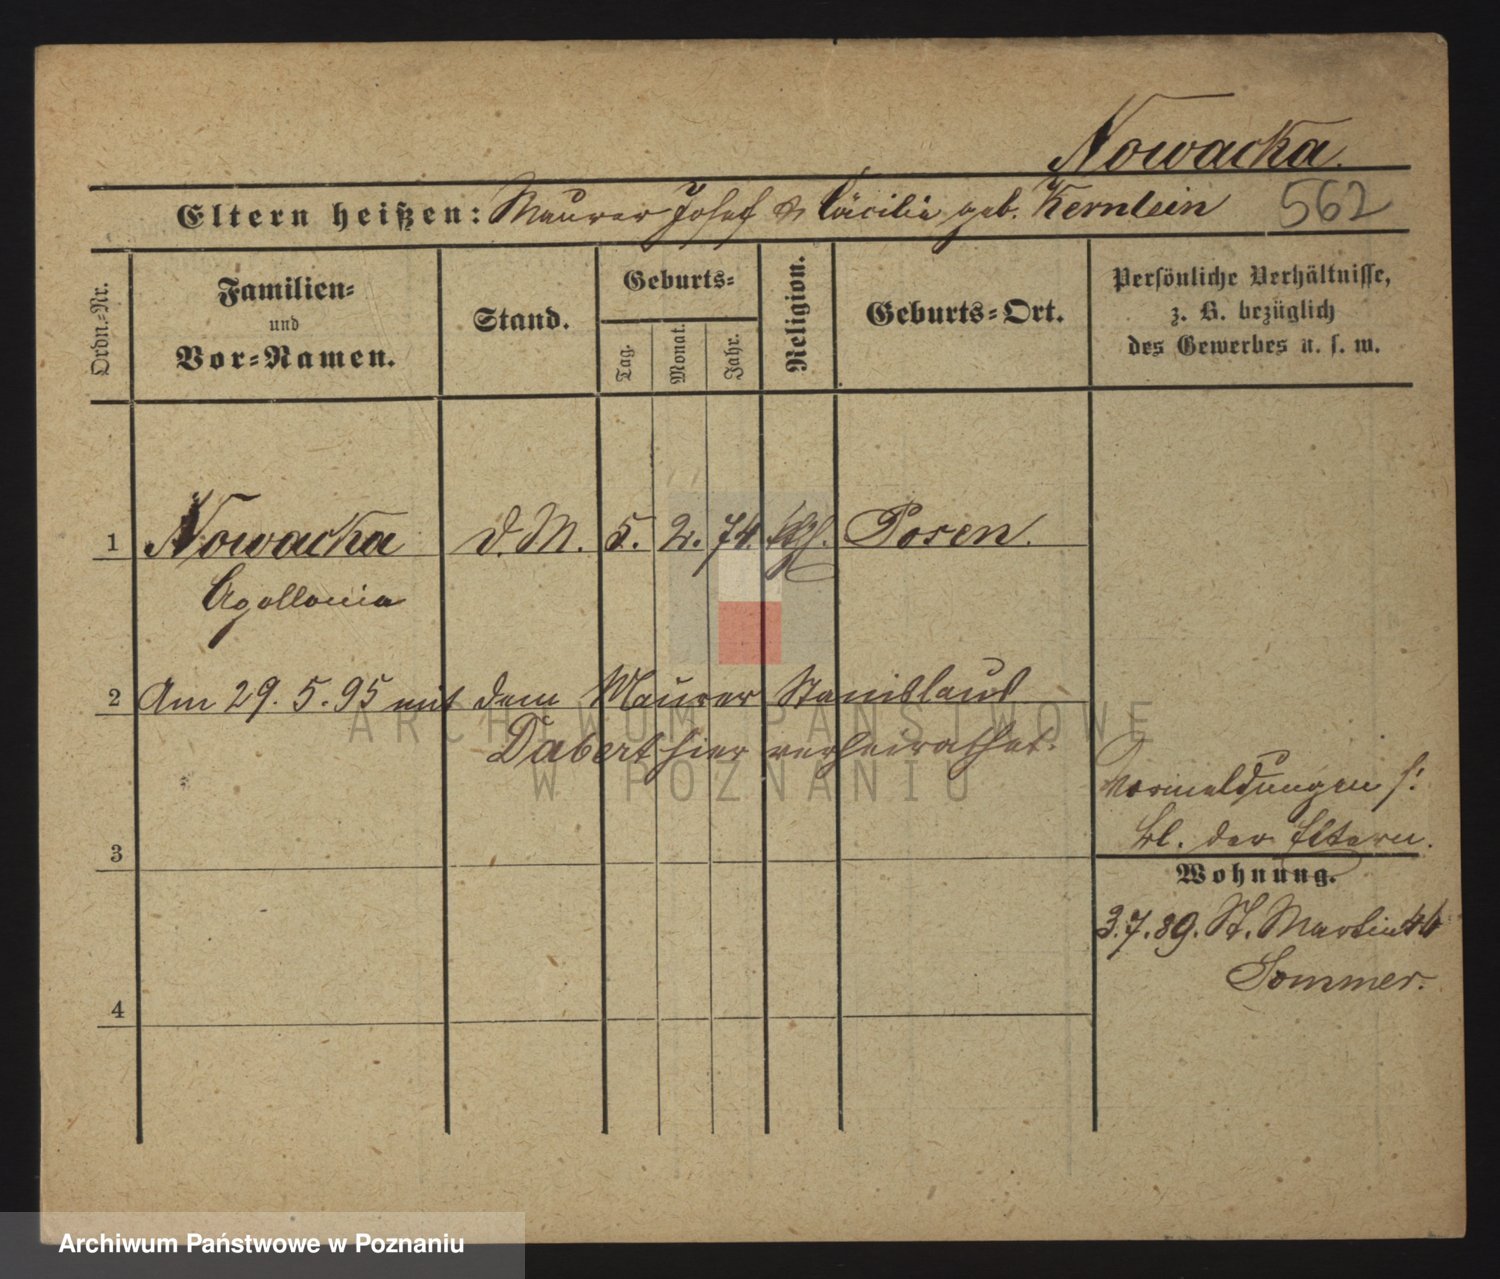 Nowacka.
Eltern heißen: Maurer Josef & Cäcilie geb. Kernlein
562
Ordn.-Nr.
Familien-
und
Vor-Namen.
Stand.
Geburts-
Tag.
Monat.
Jahr.
Religion.
Geburts-Ort.
Persönliche Verhältnisse,
z. B. bezüglich
des Gewerbes u. s. w.
1 Nowacka d. M. 5. 2. 74. kth. Posen.
Apollonia
2 Am 29. 5. 95 mit dem Maurer Stanislaus
Dabert hier verheirathet.
Vormeldungen s:
bl. der Eltern.
3
Wohnung.
3.7.89. St. Martin 44
Sommer.
4
ARCHIWUM PAŃSTWOWE
W POZNANIU
Archiwum Państwowe w Poznaniu